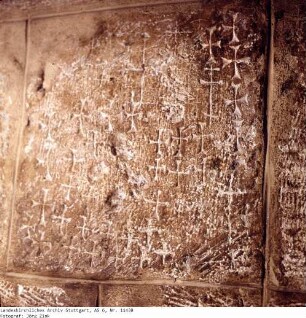 Landeskirchliches Archiv Stuttgart, AS 6, Nr. 11430
Fotograf: Jörg Zink